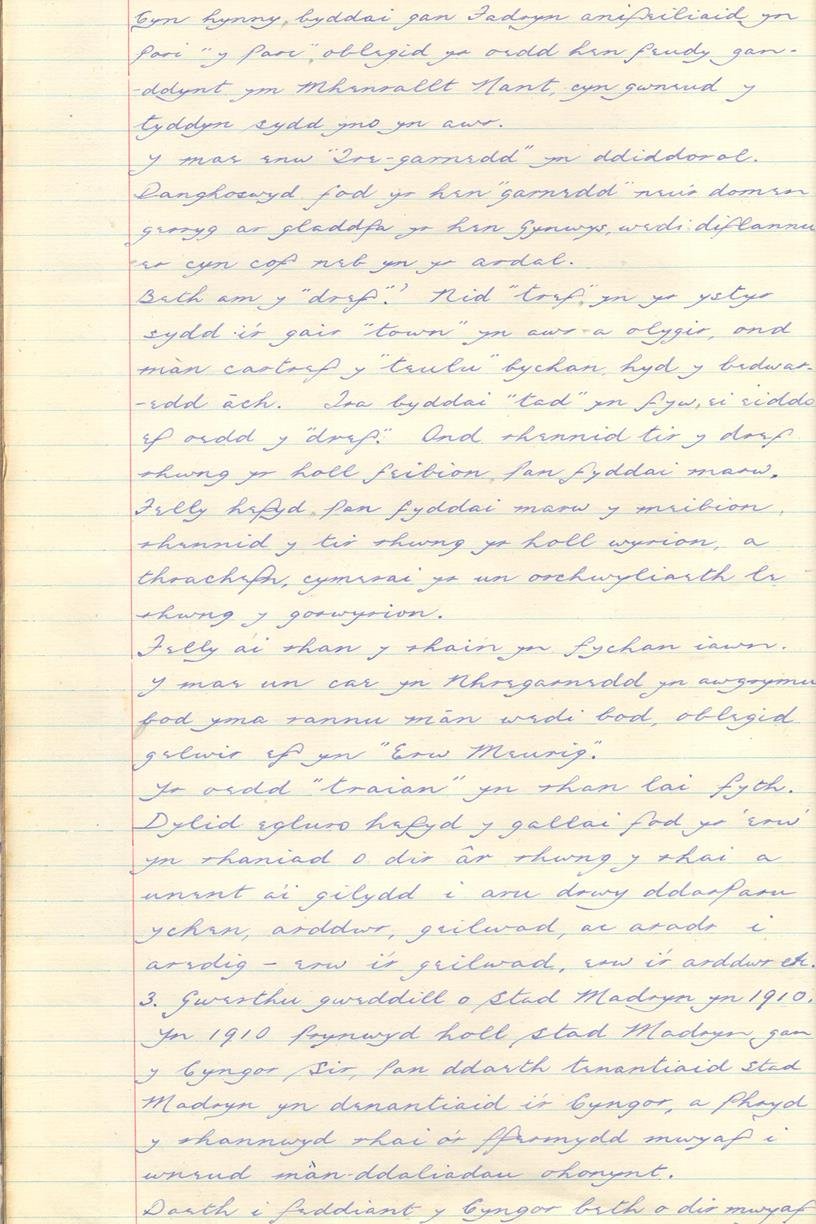 Cyn hynny, byddai gan Fadryn anifeiliaid yn
pori "y parc", oblegid yr oedd hen feudy gan-
-ddynt ym Mhenrallt Nant, cyn gwneud y
tyddyn sydd yno yn awr.
Y mae enw "Tre-garnedd" yn ddiddorol.
Danghoswyd fod yr hen "garnedd" neu'r domen
gerryg ar gladdfa yr hen Gynwys, wedi diflannu
er cyn cof neb yn yr ardal.
Beth am y "dref"? Nid "tref" yn yr ystyr
sydd i'r gair "town" yn awr a olygir, ond
màn cartref y "teulu" bychan, hyd y bedwar-
-edd āch. Tra byddai "tad" yn fyw, ei eiddo
ef oedd y "dref". Ond rhennid tir y dref
rhwng yr holl feibion pan fyddai marw.
Felly hefyd pan fyddai marw y meibion,
rhennid y tir rhwng yr holl wyrion, a
thrachefn, cymerai yr un orchwyliaeth le
rhwng y gorwyrion.
Felly ai rhan y rhain yn fychan iawn.
Y mae un cae yn Nhregarnedd yn awgrymu
fod yma rannu mān wedi bod, oblegid
gelwir ef yn "Erw Meurig".
Yr oedd "traian" yn rhan lai fyth.
Dylid egluro hefyd y gallai fod yr 'erw'
yn rhaniad o dir âr rhwng y rhai a
unent a'i gilydd i aru drwy ddarparu
ychen, arddwr, geilwad, ac aradr i
aredig - erw i'r geilwad, erw i'r arddwr etc.
3. Gwerthu gweddill o stad Madryn yn 1910.
Yn 1910 prynwyd holl stad Madryn gan
y Cyngor Sir, pan ddaeth tenantiaid stad
Madryn yn denantiaid i'r Cyngor, a phryd
y rhannwyd rhai o'r ffermydd mwyaf i
wneud màn-ddaliadau ohonynt.
Daeth i feddiant y Cyngor beth o dir mwyaf